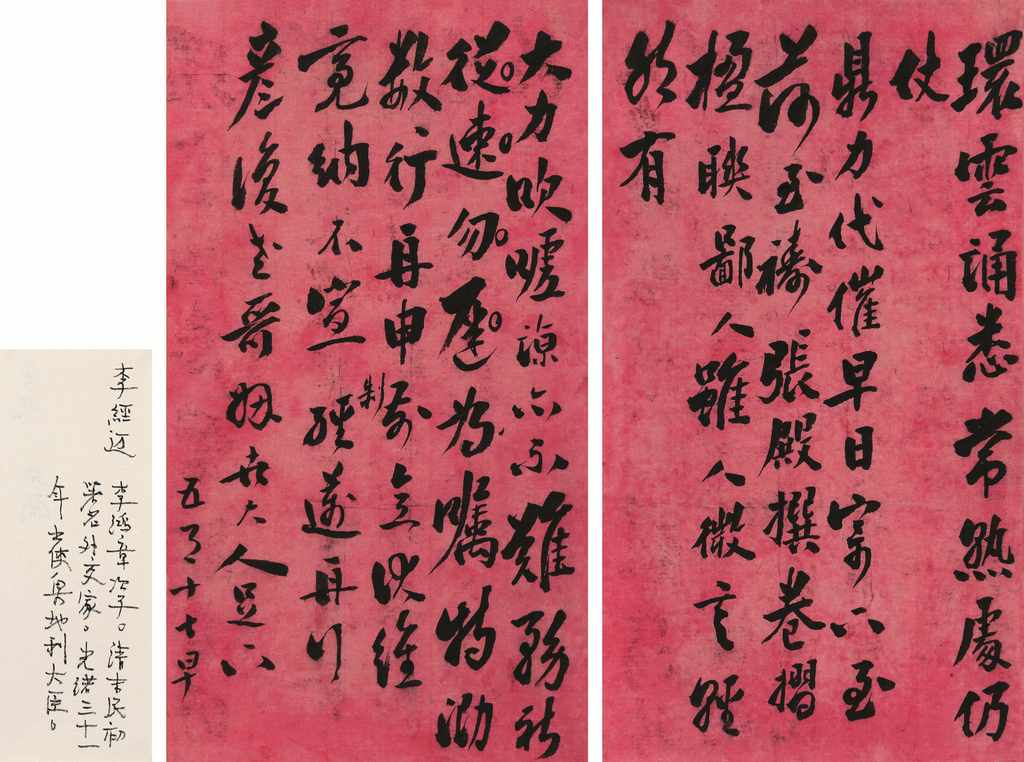 環雲誦悉常熟處仍
仗
鼎力代催早日寄下至
荷至禱張殿撰卷摺
楹聯鄙人雖人微言輕
然有
大力吹噓諒亦不難務祈
從速勿遲為囑特泐
數行再申前意此維
制
亮納不宣經邁再行
彥復老哥姻世大人足下
五月十七早
李經邁
李鴻章次子。清末民初
著名外交家。光緒三十一
年出使奧地利大臣。